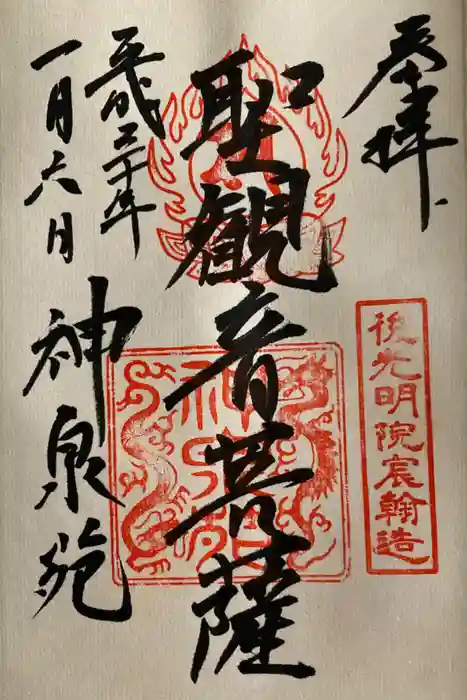 奉拝
後光明院宸翰造
聖観音菩薩
神泉苑
平成三十年
一月六日
神泉苑